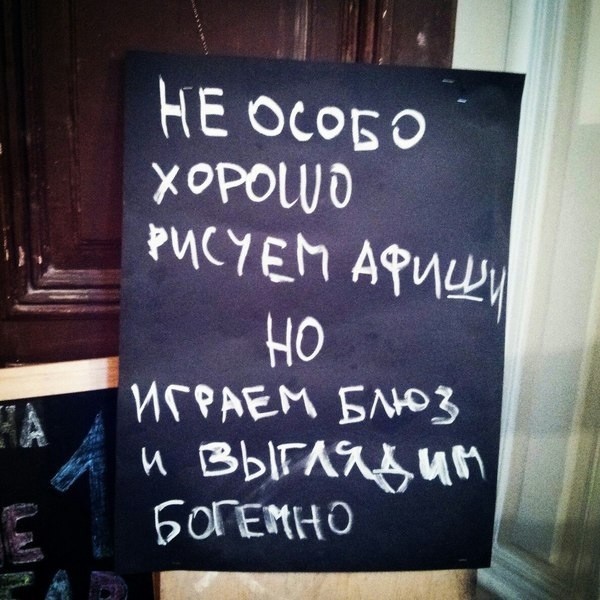 НЕ ОСОБО
ХОРОШО
РИСУЕМ АФИШИ
НО
ИГРАЕМ БЛЮЗ
и ВЫГЛЯДИМ
БОГЕМНО
НА
1